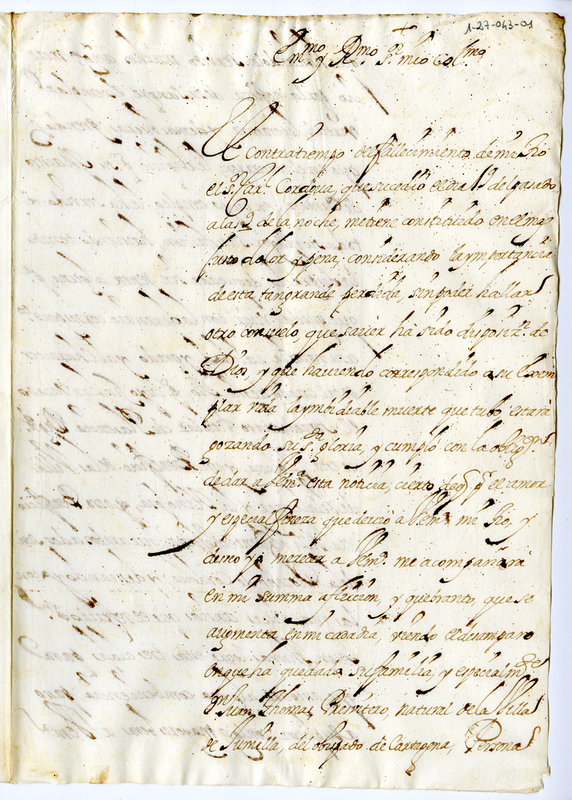 1-27-043-01
Em.mo y R.mo S.r mio Col.mo
El contratiempo del fallecimiento de mi tio
el S.r Car.l Coradja, que sucedio el dia 15 del pasado
a las 2 de la noche, me tiene constituido en el ma-
sumo dolor y pena, considerando la ymportancia
de esta tan grande perdida, sin poder hallar
otro consuelo que saver ha sido disposiz.n de
Dios y que haviendo correspondido a su Exem
plar vida la ymbidiable muerte que tubo, estará
gozando su s.ta gloria, y cumplo con la oblig.on
de dar a V.Em.a esta noticia, cierto de q.e el amor
y especial fineza que devio a V.Em.a mi tio, y
devo yo merecer a V.Em.a me acompañará
en mi summa aflicion, y quebranto, que se
augmenta en mi cada dia, viendo el desamparo
en que ha quedado su familia, y especialm.te
D.n Juan Thomas, Presvitero, natural de la Villa
de Jumilla, del obispado de Cartagena, Persona